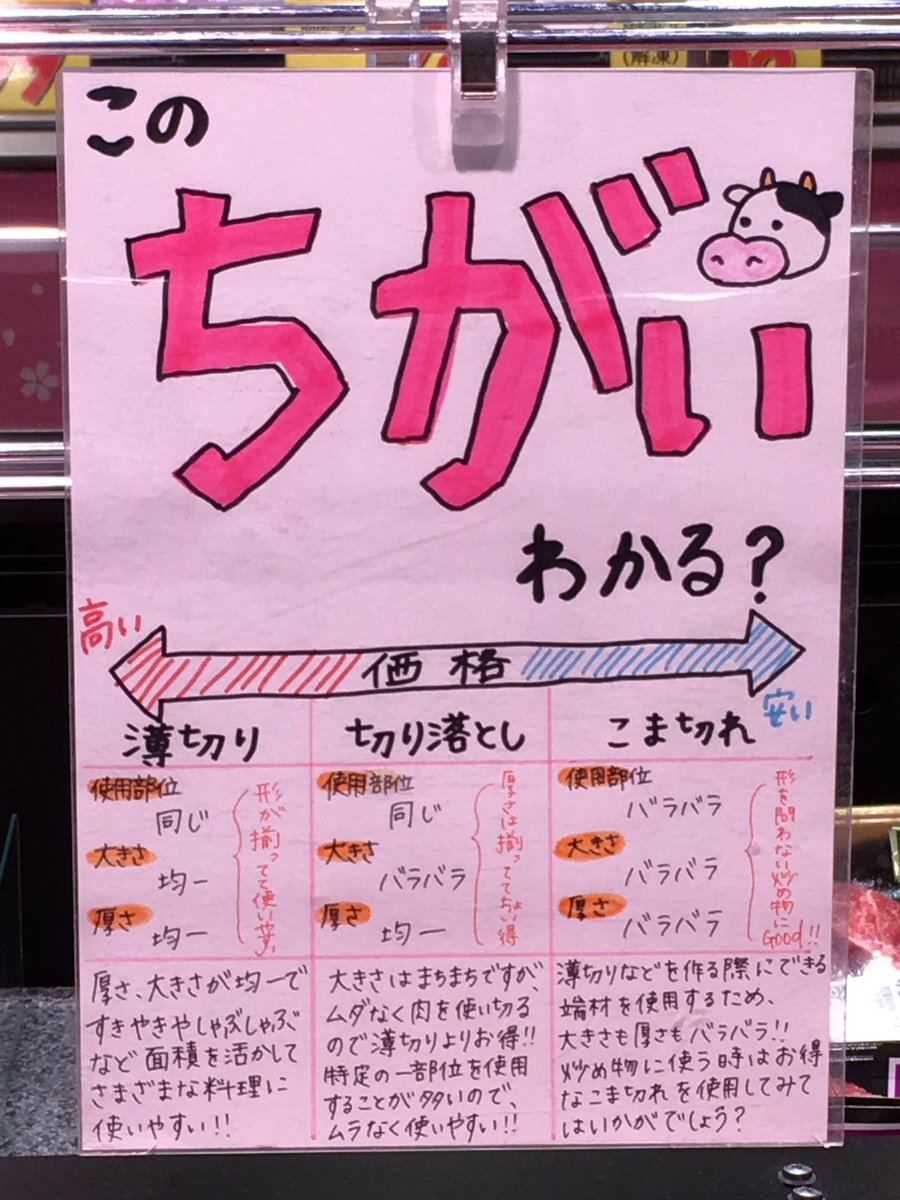 (解凍)
この
ちがい
わかる?
高い
価格
安い
薄切り
使用部位
同じ
大きさ
均一
厚さ
均一
形が揃ってて使いやすい
厚さ、大きさが均一で
すきやきやしゃぶしゃぶ
など面積を活かして
さまざまな料理に
使いやすい!!
切り落とし
使用部位
同じ
大きさ
バラバラ
厚さ
均一
厚さは揃っててちょい得
大きさはまちまちですが、
ムダなく肉を使い切る
ので薄切りよりお得!!
特定の一部位を使用
することが多いので、
ムラなく使いやすい!!
こま切れ
使用部位
バラバラ
大きさ
バラバラ
厚さ
バラバラ
形を問わない炒め物に
GOOD!!
薄切りなどを作る際にできる
端材を使用するため、
大きさも厚さもバラバラ!!
炒め物に使う時はお得
なこま切れを使用してみて
はいかがでしょう?